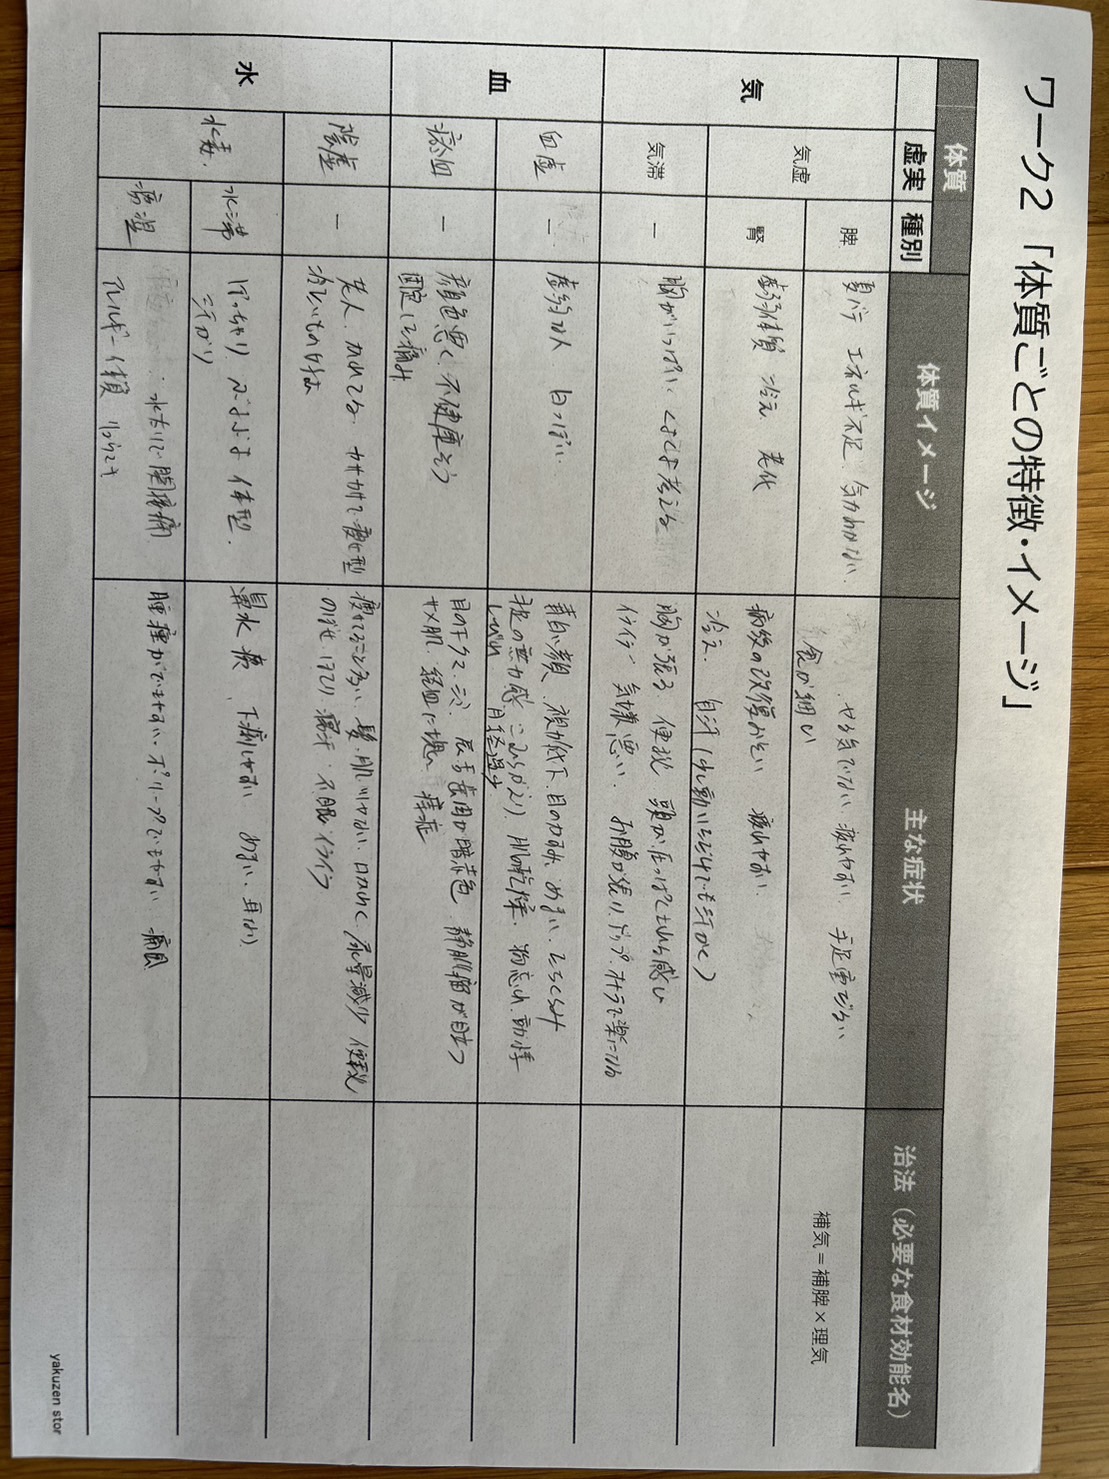 ワーク2「体質ごとの特徴・イメージ」
体質
虚実
種別
体質イメージ
主な症状
治法（必要な食材効能名）
気
気虚
脾
夏バテ エネルギ不足、気力わかない、
やる気でない 疲れやすい 手足重だるい
食が細い
補気＝補脾×理気
腎
虚弱体質 冷え 老化
病後の改復おそい 疲れやすい
冷え、自汗（少し動いただけでも汗かく）
気滞
ー
胸がいっぱい、くよくよ考える
胸が張る 便秘 頭が圧っぱくされる感じ
イライラ 気嫌悪い、お腹が張り、ゲップ、オナラで楽になる
血
血虚
ー
虚弱な人 白っぽい
蒼白い顔 視力低下、目のかすみ、めまい、立ちくらみ
手足の無力感 こむらがえり、肌の乾燥、物忘れ、動悸
しびれ 月経過少
瘀血
ー
顔色悪く、不健康そう
固定した痛み
目の下クマ、シミ、唇舌歯周が暗赤色 静脈瘤が目立つ
サメ肌 経血に塊 痔症
水
陰虚
ー
老人、かれてる カサカサで痩せ型
冷たいもの好き
痩せてること多い、髪、肌ツヤない 口かわく 尿量減少 便秘
のぼせ ほてり 寝汗 不眠 イライラ
水毒
水滞
ぽっちゃり ぷよぷよ 体型、
鼻水 痰、下痢しやすい めまい、耳なり
痰湿
水もりで関節痛
アレルギー体質
腫瘤ができやすい、ポリープできやすい 痛風
yakuzen stor